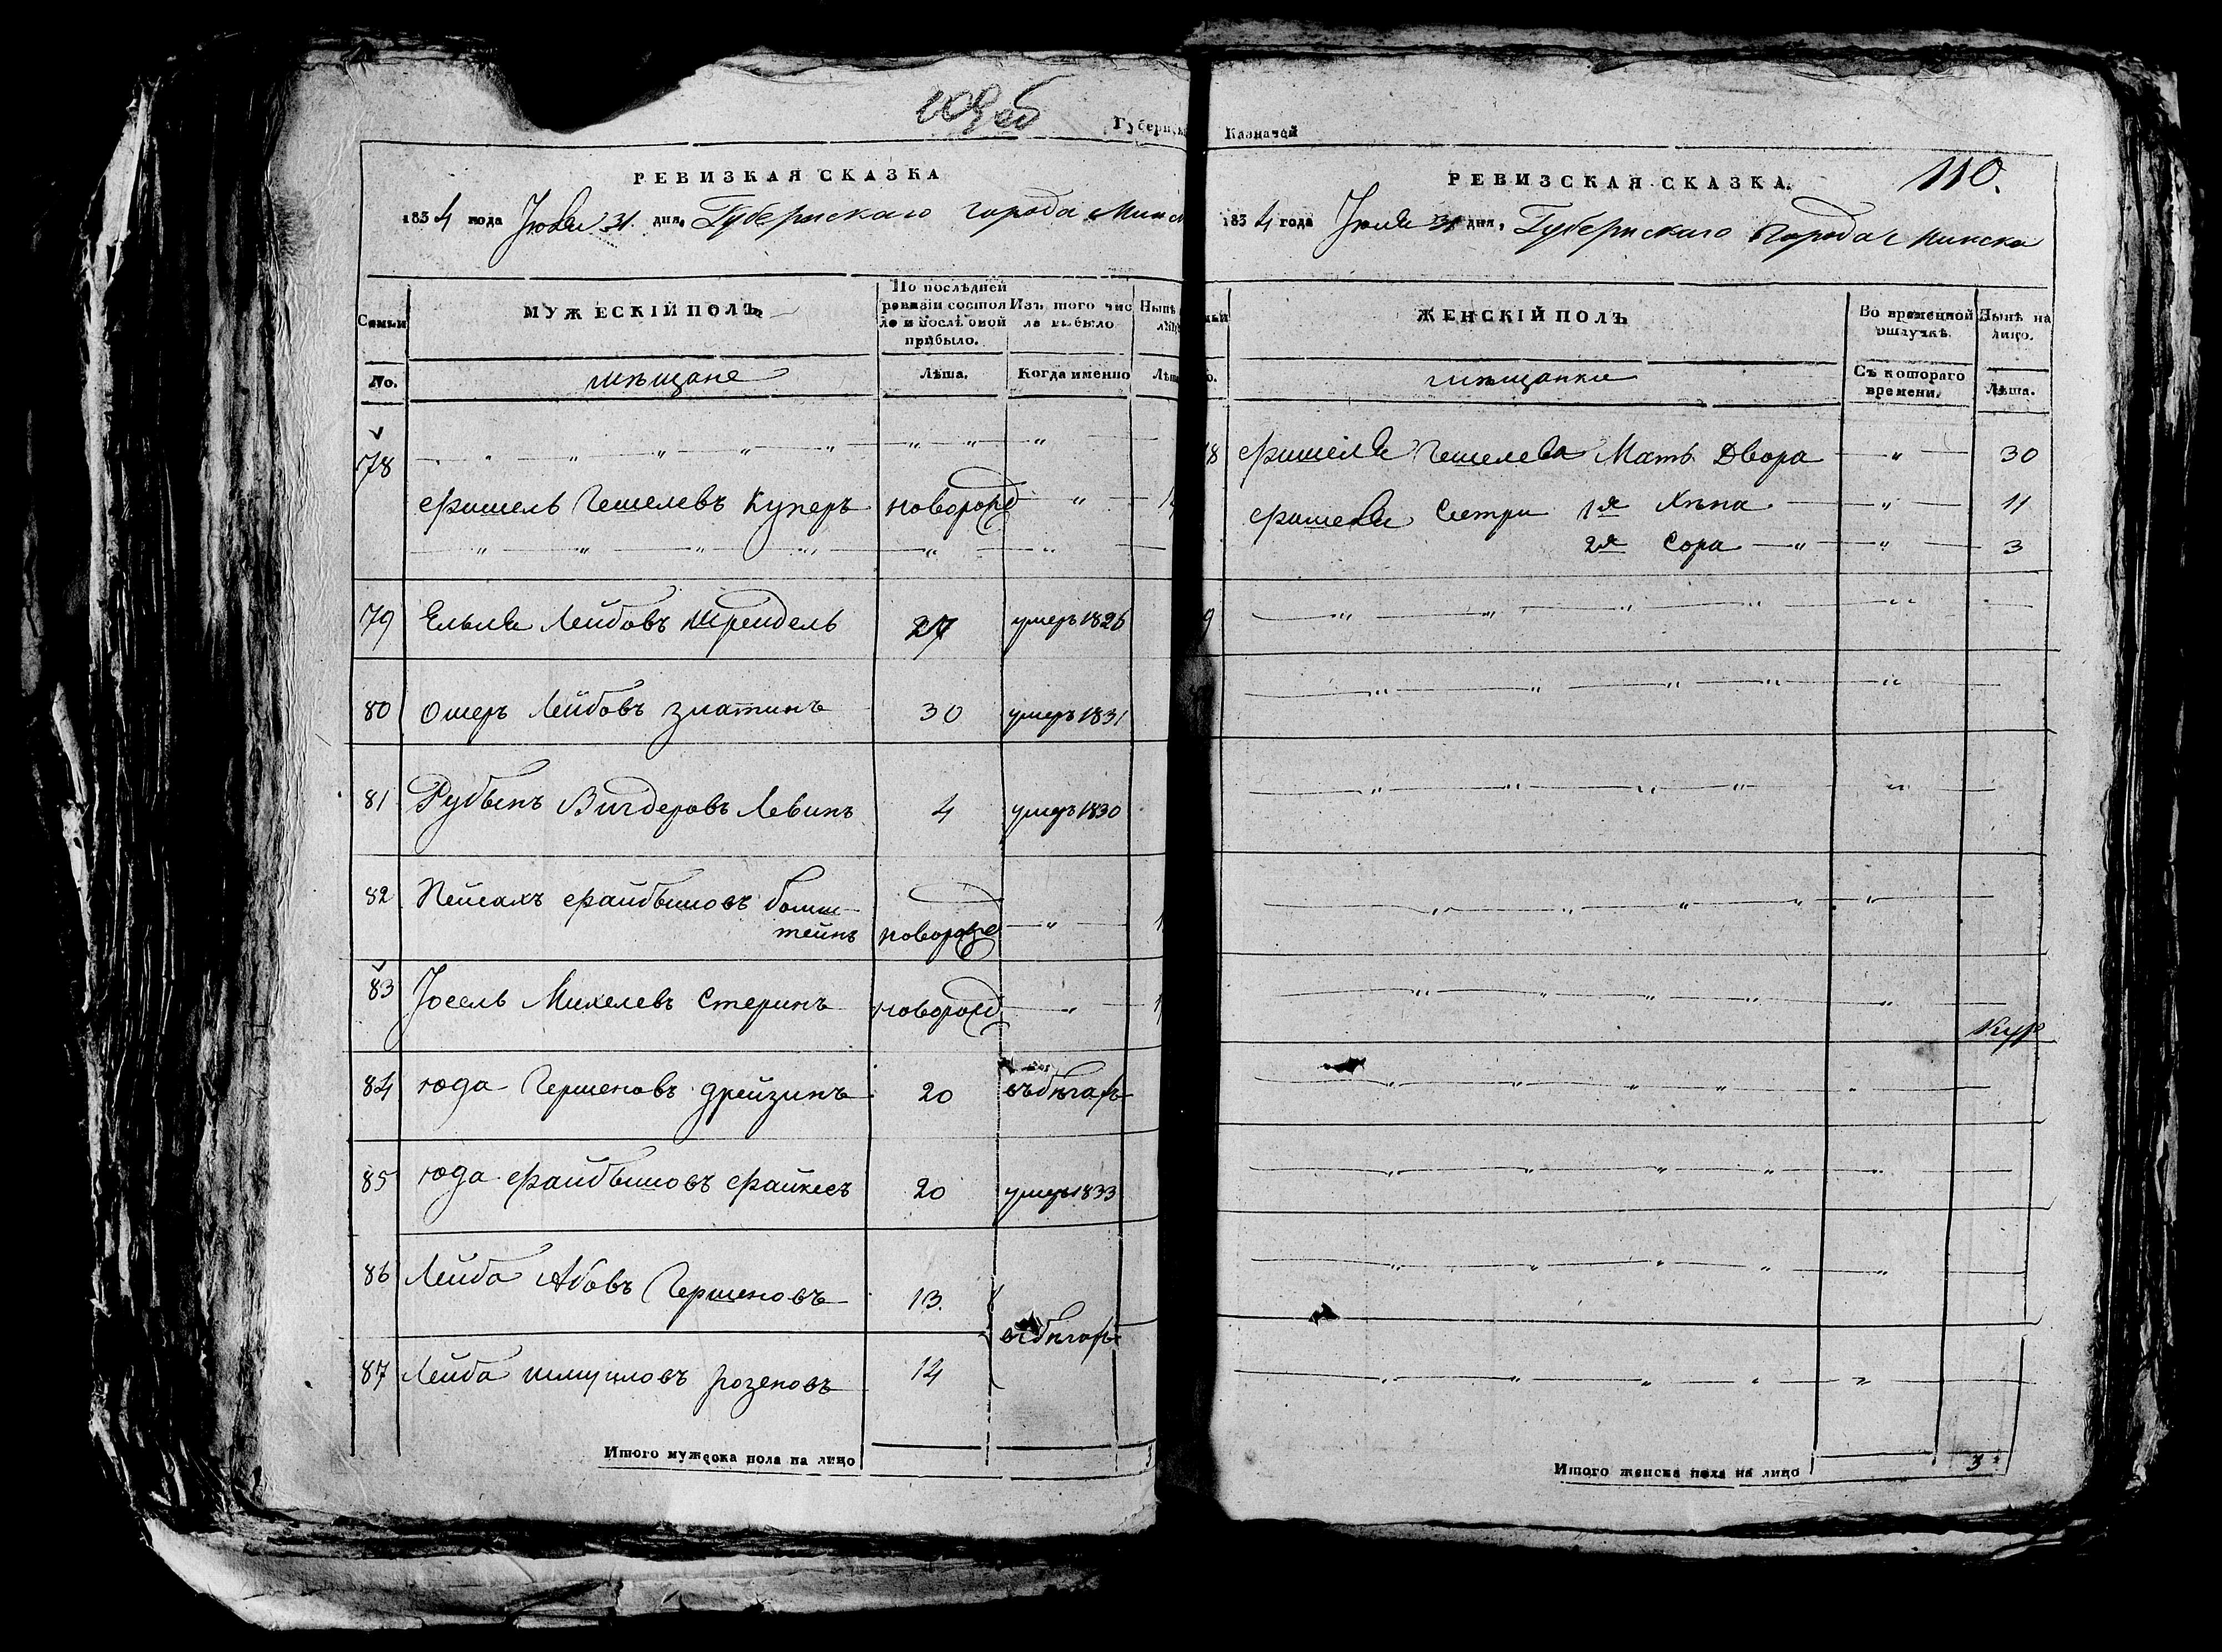 109об
Губернск
РЕВИЗКАЯ СКАЗКА
1834 года Июля 31 дня, Губернскаго города Минск
Семьи
МУЖЕСКІЙ ПОЛЪ
По последней ревизіи состояло и после оной прибыло.
Изъ того числа выбыло
Ныне
No.
мѣщане
Лѣта.
Когда именно
Лѣта
78
Фишель Гешелевъ Куперъ новорожд
79 Ельля Лейбовъ Шрендель 27 умеръ 1826
80 Ошеръ Лейбовъ Златинъ 30 умеръ 1831
81 Рубынъ Вигдеровъ Левинъ 4 умеръ 1830
82 Пейсахъ Файбышовъ Болш
тейнъ новорожд
83 Іосель Михелевъ Стеринъ новорожд
84 юда Гершеновъ Дрейзинъ 20 въ бѣгахъ
85 юда Файбышовъ Файкесъ 20 умеръ 1833
86 Лейба Абовъ Гершеновъ 13.
въ бѣгахъ
87 Лейба Шмуиловъ Розеновъ 14
Итого мужеска пола на лицо 3
Казначей
110.
РЕВИЗСКАЯ СКАЗКА.
1834 года Июля 31 дня, Губернскаго города Минска
ЖЕНСКІЙ ПОЛЪ
Во временной отлучкѣ.
Нынѣ на лицо.
мѣщанки
Съ котораго времени.
Лѣта.
Фишеля Гешелева Мать Двора 30
Фишеля Сестри 1я Хѣна 11
2я Сора 3
Кур
Итого женска пола на лицо 3